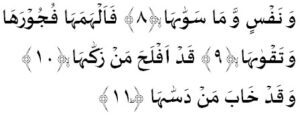 وَ نَفْسٍ وَّ مَا سَوّٰىهَا ﴿۸﴾ فَاَلْهَمَهَا فُجُوْرَهَا
وَ تَقْوٰىهَا ﴿۹﴾ قَدْ اَفْلَحَ مَنْ زَكّٰىهَا ﴿۱۰﴾
وَ قَدْ خَابَ مَنْ دَسّٰىهَا ﴿۱۱﴾